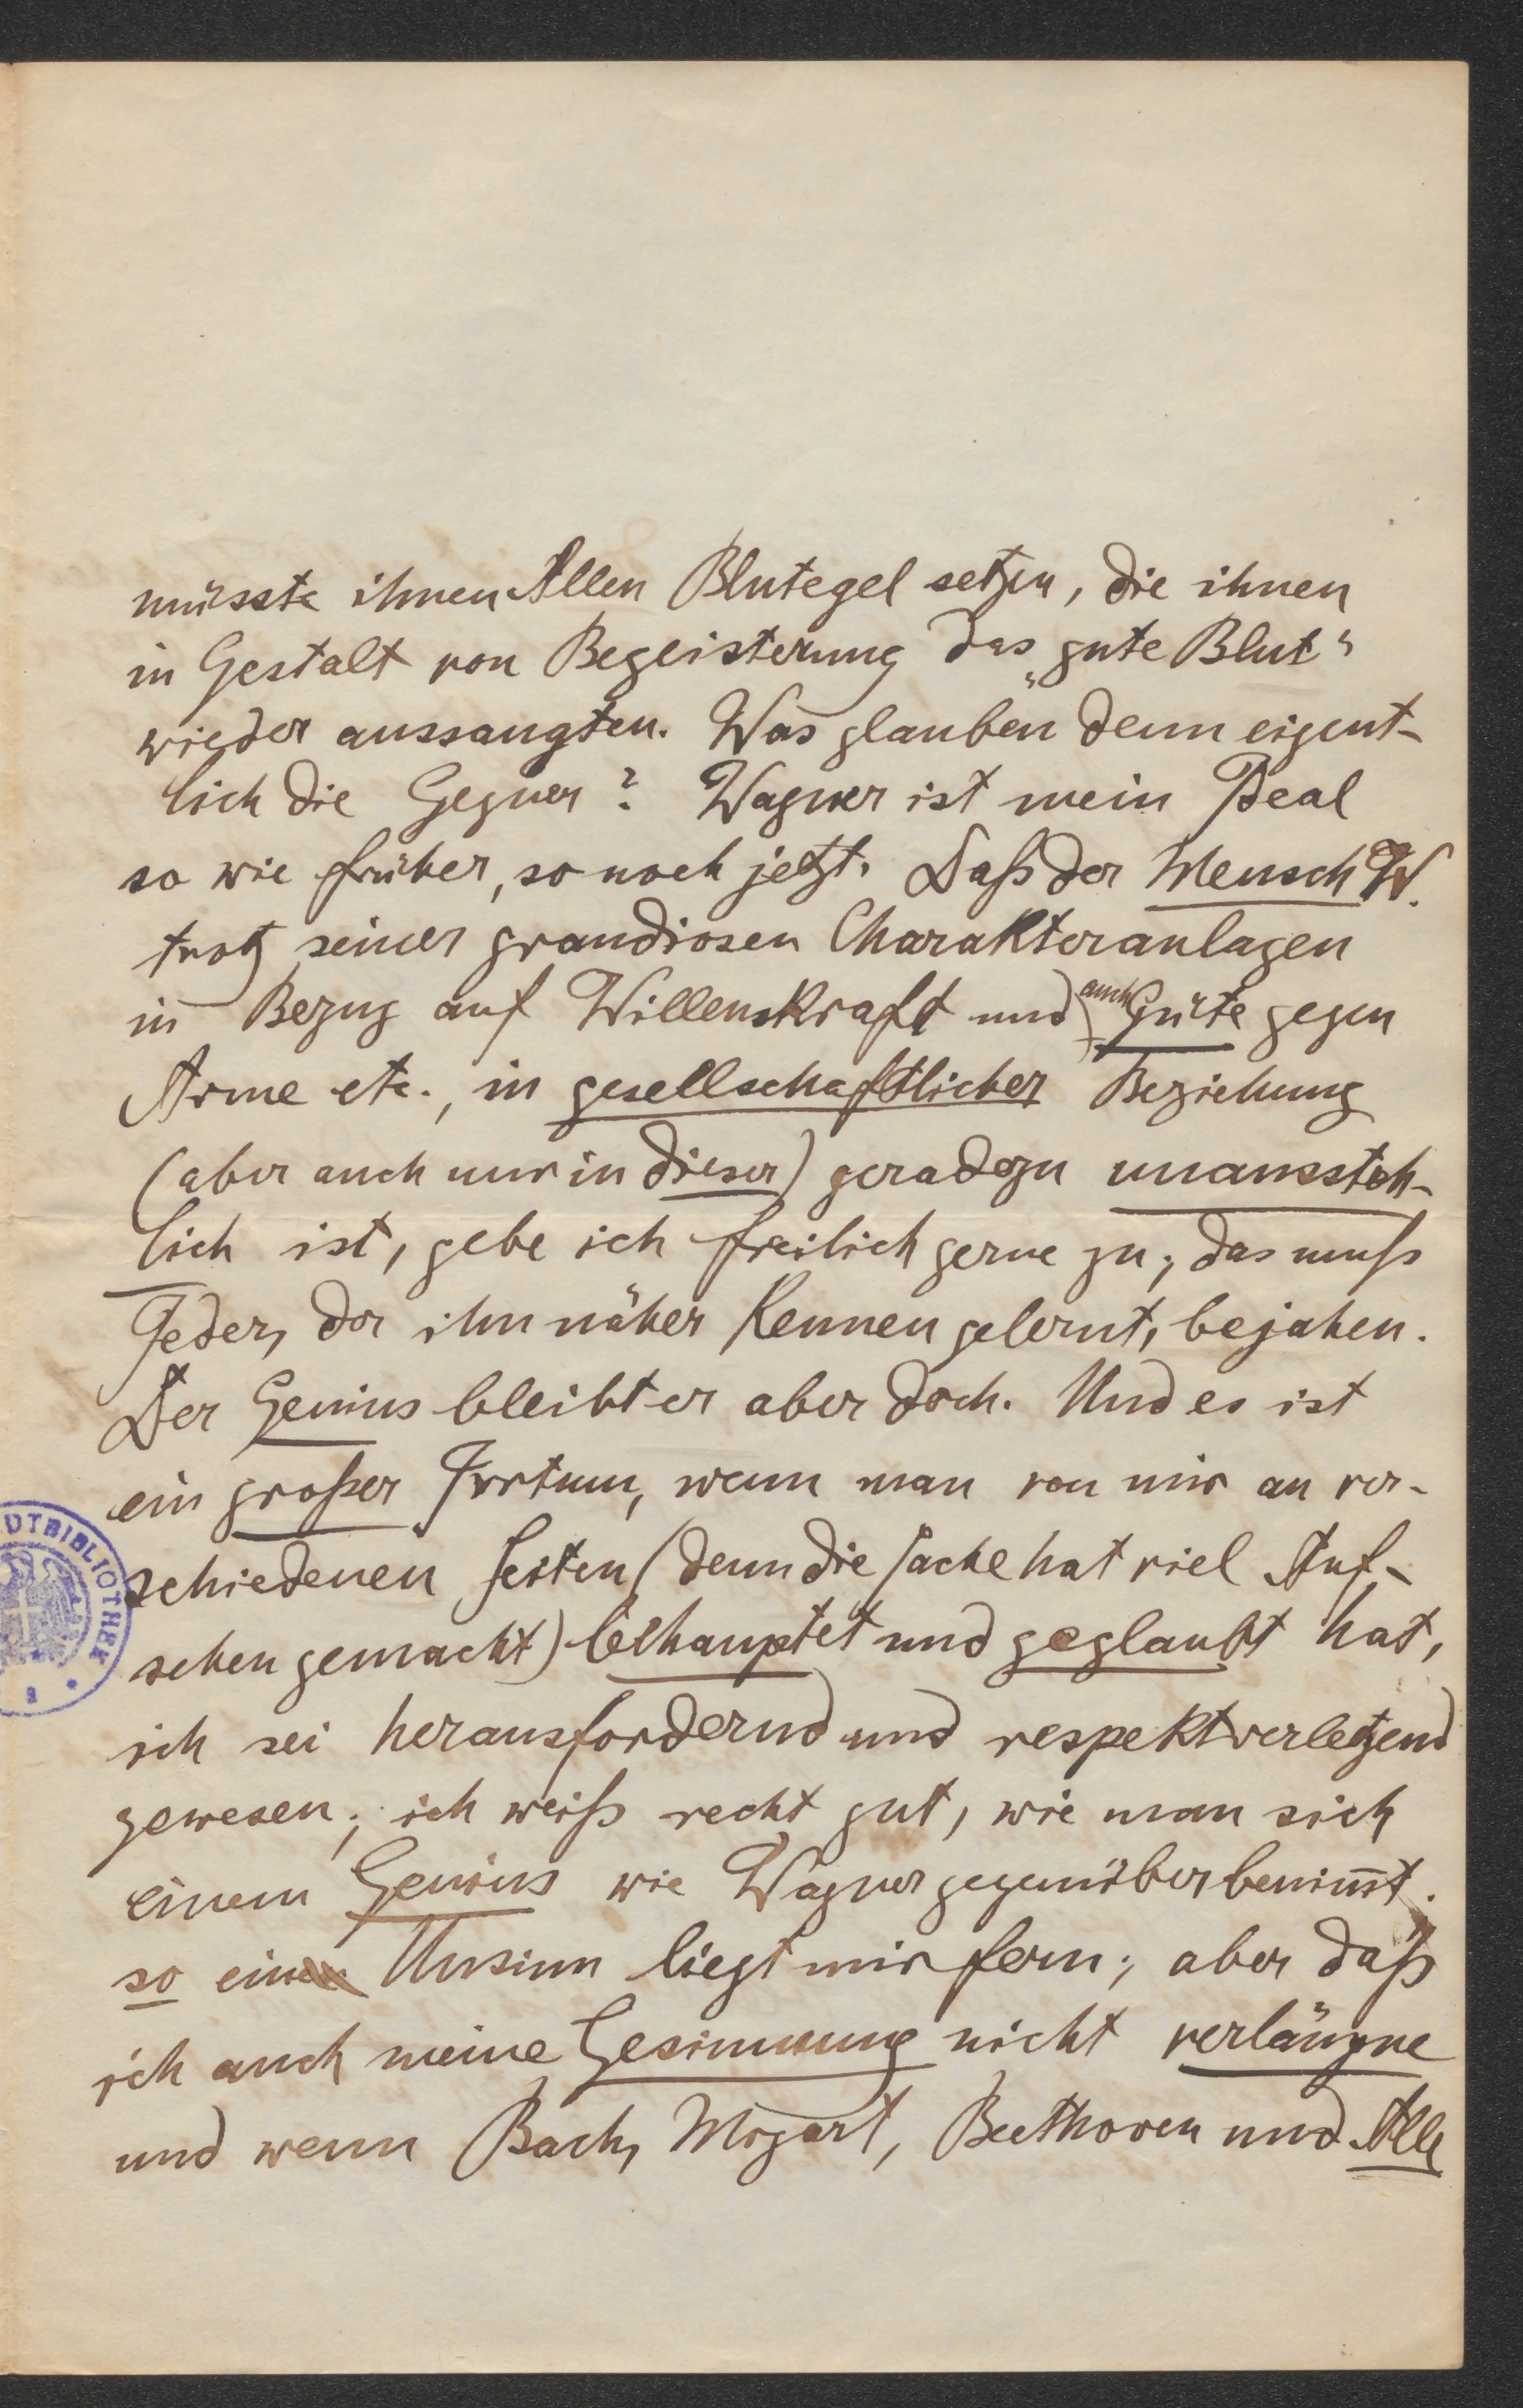 müsste ihnen Allen Blutegel setzen, die ihnen
in Gestalt von Begeisterung das „gute Blut“
wieder aussaugten. Was glauben denn eigent-
lich die Gegner? Wagner ist mein Ideal
so wie früher, so noch jetzt. Daß der Mensch W.
trotz seiner grandiosen Charakteranlagen
in Bezug auf Willenskraft und auch Güte gegen
Arme etc., in gesellschaftlicher Beziehung
(aber auch nur in dieser) geradezu unaussteh-
lich ist, gebe ich freilich gerne zu; das muß
Jeder, der ihn näher kennen gelernt, bejahen.
Der Genius bleibt er aber doch. Und es ist
ein großer Irrtum, wenn man von mir an ver-
schiedenen Seiten (denn die Sache hat viel Auf-
sehen gemacht) behauptet und geglaubt hat,
ich sei herausfordernd und respektverletzend
gewesen; ich weiß recht gut, wie man sich
einem Genius wie Wagner gegenüber benim̅t.
so ein Unsinn liegt mir fern; aber daß
ich auch meine Gesinnung nicht verläugne
und wenn Bach, Mozart, Beethoven und Alle
DTBIBLIOTHEK